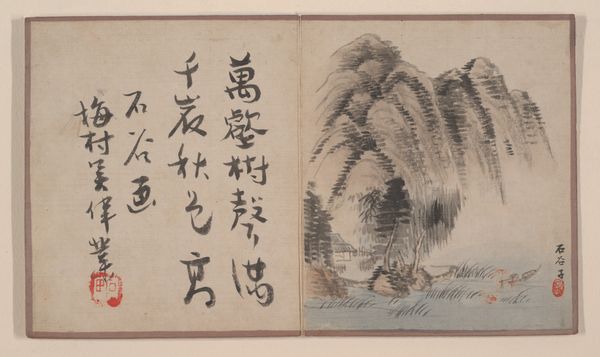 石谷子
萬壑樹聲滿
千崖秋色高
石谷画
梅村吴偉業